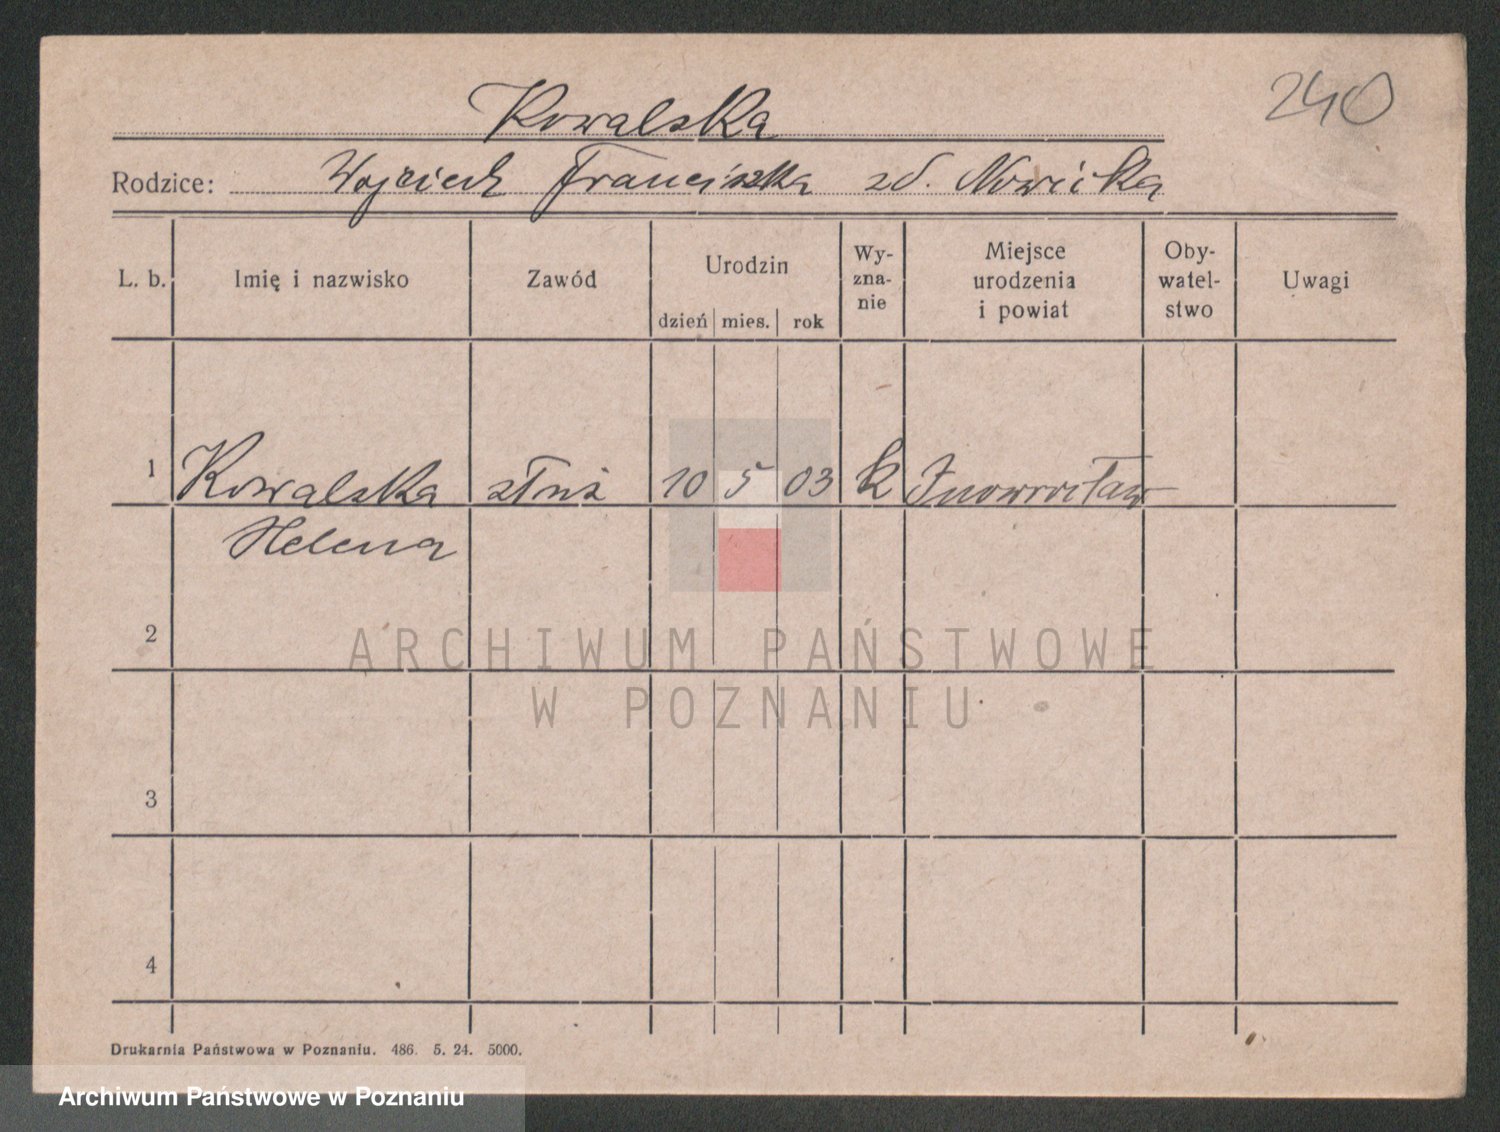 240
Kowalska
Rodzice: Wojciech Franciszka zd. Nowicka
L. b. Imię i nazwisko Zawód Urodzin dzień mies. rok Wy-znanie Miejsce urodzenia i powiat Oby-watel-stwo Uwagi
1 Kowalska służ 10 5 03 k Inowrocław
Helena
2
ARCHIWUM PAŃSTWOWE
W POZNANIU
3
4
Drukarnia Państwowa w Poznaniu. 486. 5. 24. 5000.
Archiwum Państwowe w Poznaniu